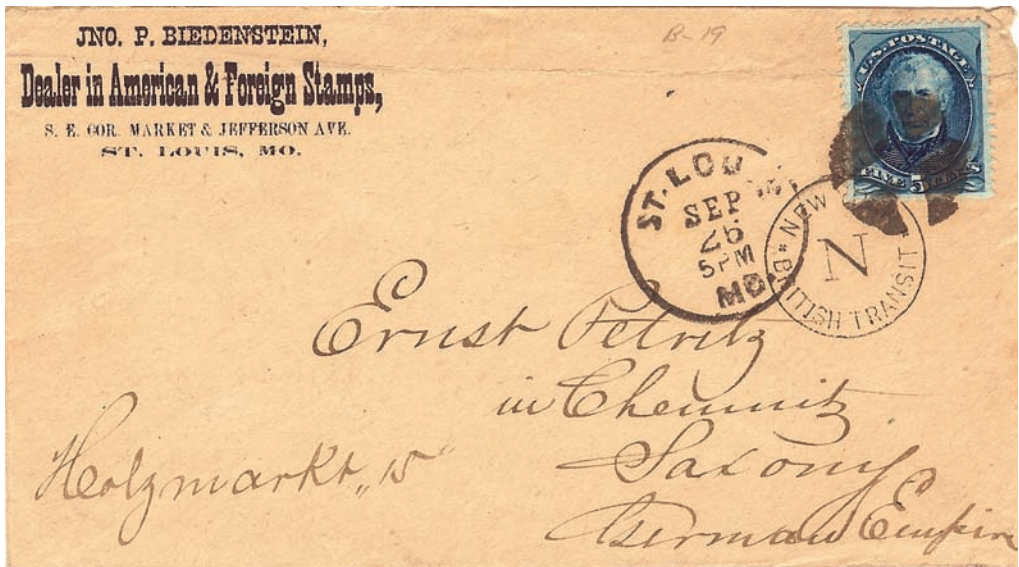 JNO. P. BIEDENSTEIN,
Dealer in American & Foreign Stamps,
S. E. COR. MARKET & JEFFERSON AVE.
ST. LOUIS, MO.
B-19
U.S. POSTAGE
FIVE 5 CENTS
ST. LOU
SEP
26
5PM
MO.
NEW
N
BRITISH TRANSIT
Ernst Petritz
in Chemnitz
Saxony
German Empire
Holzmarkt, 15